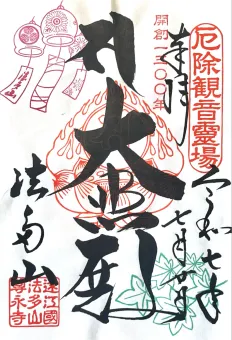 厄除観音霊場
奉拝
開創一三〇〇年
令和七年
七月
大悲殿
法多山
遠江國
法多山
尊永寺